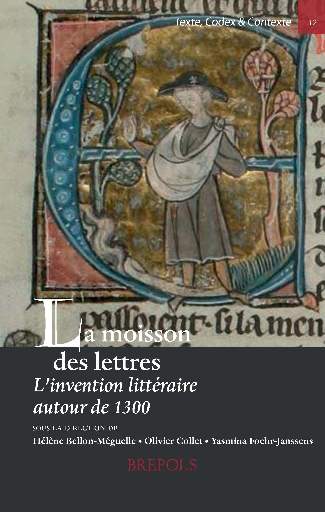 Texte, Codex & Contexte 12
La moisson
des lettres
L'invention littéraire
autour de 1300
SOUS LA DIRECTION DE
Hélène Bellon-Méguelle • Olivier Collet • Yasmina Foehr-Janssens
BREPOLS